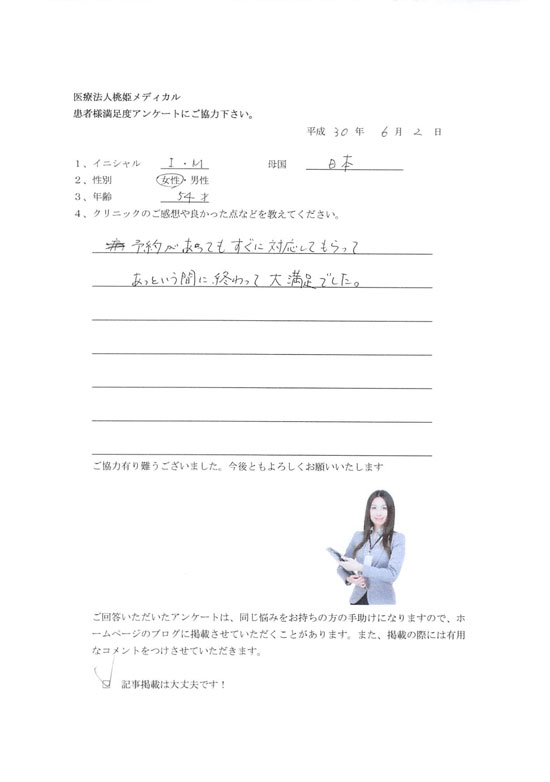 医療法人桃姫メディカル
患者様満足度アンケートにご協力下さい。
平成 30 年 6 月 2 日
1、イニシャル I・M 母国 日本
2、性別 女性・男性
3、年齢 54才
4、クリニックのご感想や良かった点などを教えてください。
予約があってもすぐに対応してもらって
あっという間に終わって大満足でした。
ご協力有り難うございました。今後ともよろしくお願いいたします
ご回答いただいたアンケートは、同じ悩みをお持ちの方の手助けになりますので、ホ
ームページのブログに掲載させていただくことがあります。また、掲載の際には有用
なコメントをつけさせていただきます。
☑ 記事掲載は大丈夫です！